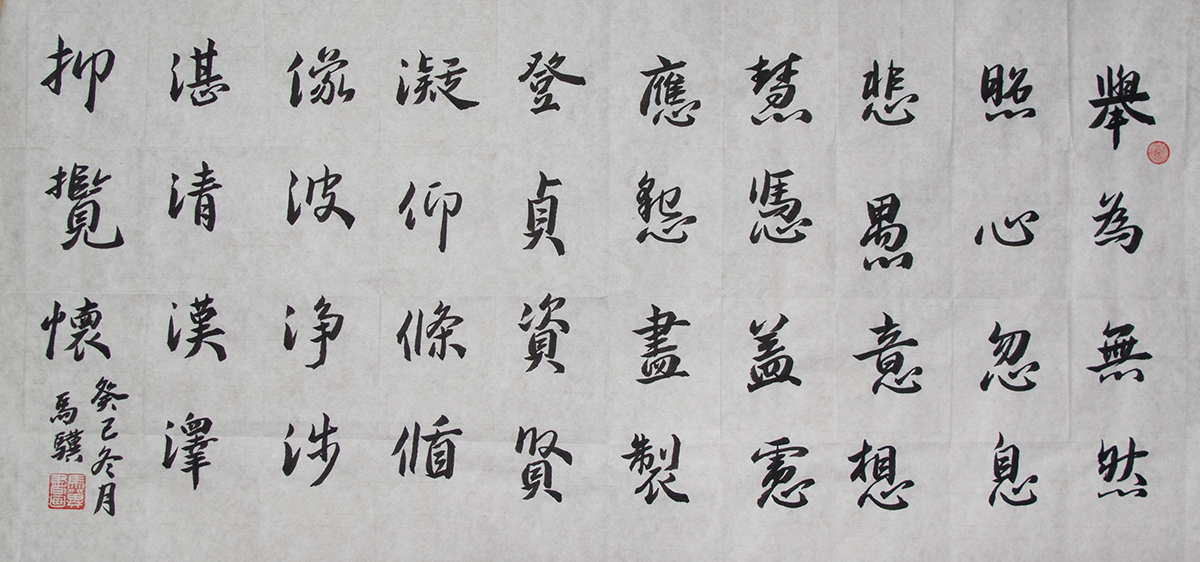 舉為無然
照心忽息
悲愚意想
慧憑蓋慮
應怨盡製
登貞資賢
凝仰條循
像波淨涉
湛清漢澤
抑攬懷
癸已冬月
馬驥